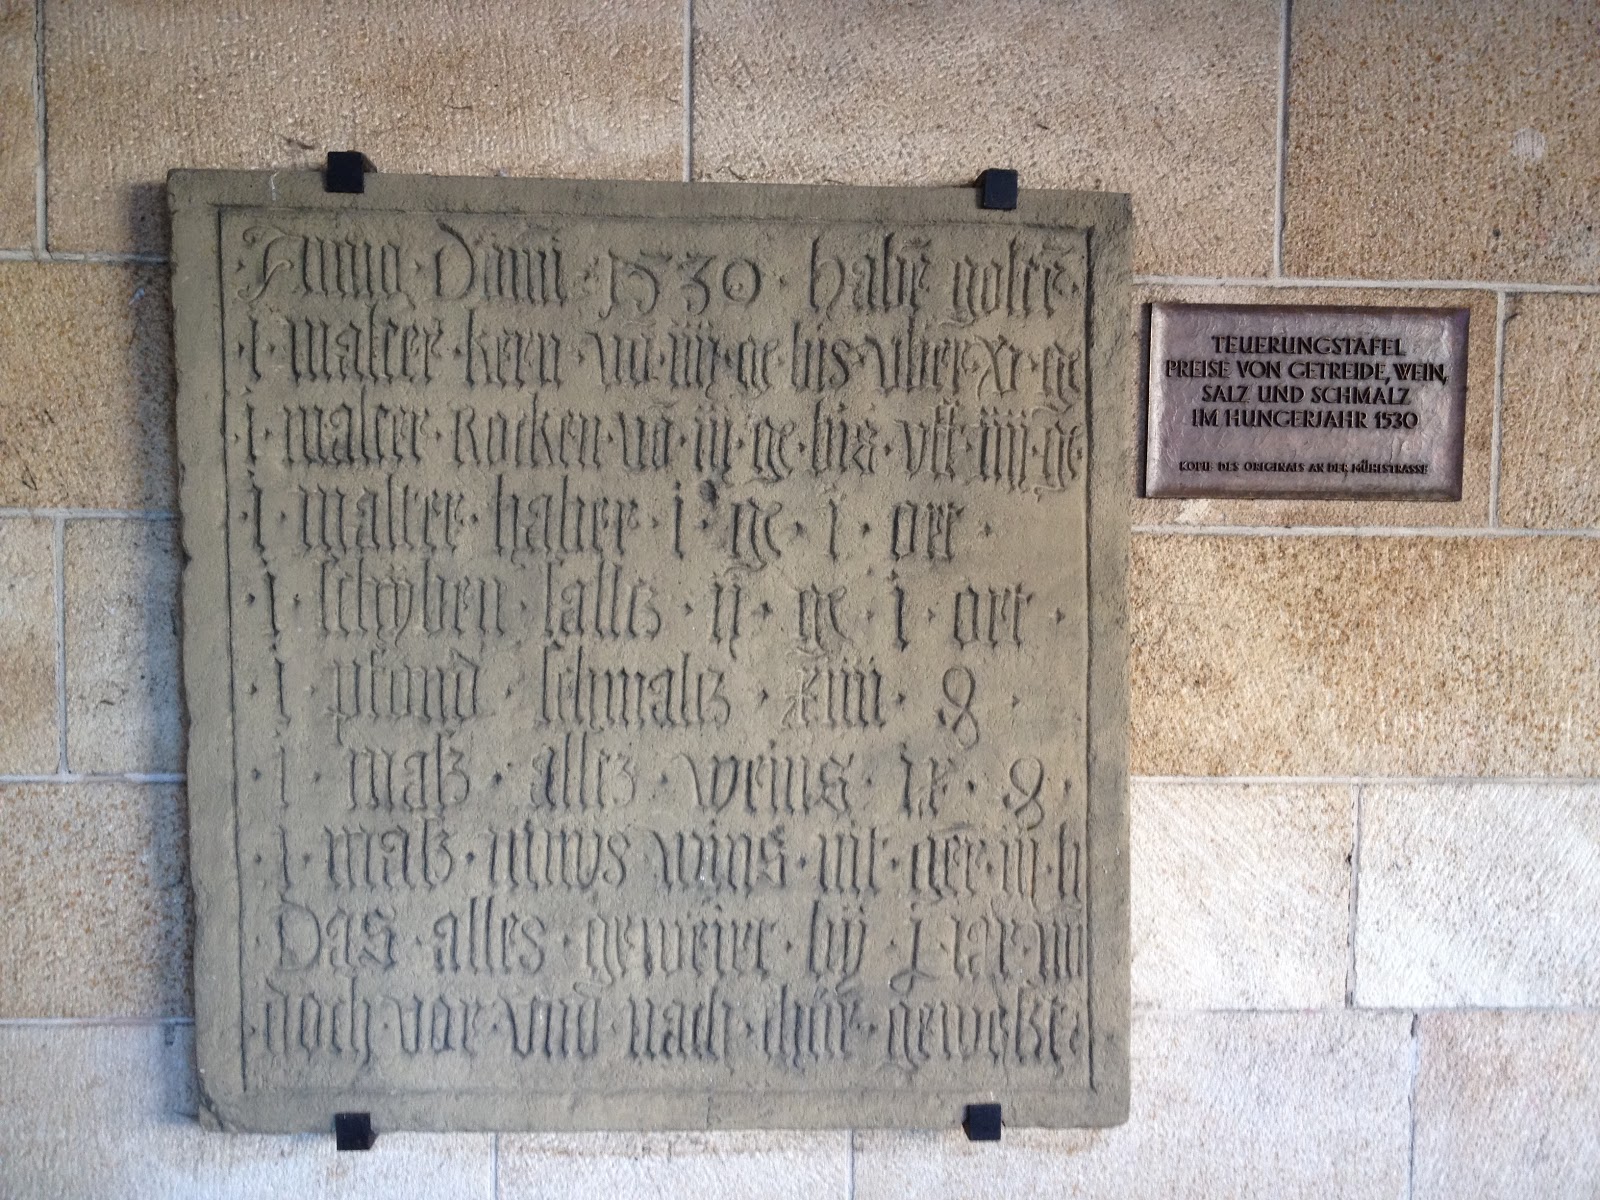 Anno · Dãni · 1530 · habẽ golte ·
· i · malter · kern · vũ · iiij · ge · bis · vber · xi · ge
· i · malter · Rocken · vũ · iij · ge · bis · vff · iiij · ge ·
· i · malter · haber · i · ge · i · ort ·
· i · schyben · saltz · ij · ge · i · ort ·
· i · pfond · schmaltz · xiiii ·
· i · masz · altz · weins · ix ·
· i · masz · wins · nit · iij · h
· Das · alles · bij · iar
· doch · vor · vnd · nach ·
TEUERUNGSTAFEL
PREISE VON GETREIDE, WEIN,
SALZ UND SCHMALZ
IM HUNGERJAHR 1530
KOPIE DES ORIGINALS AN DER MÜHLSTRASSE